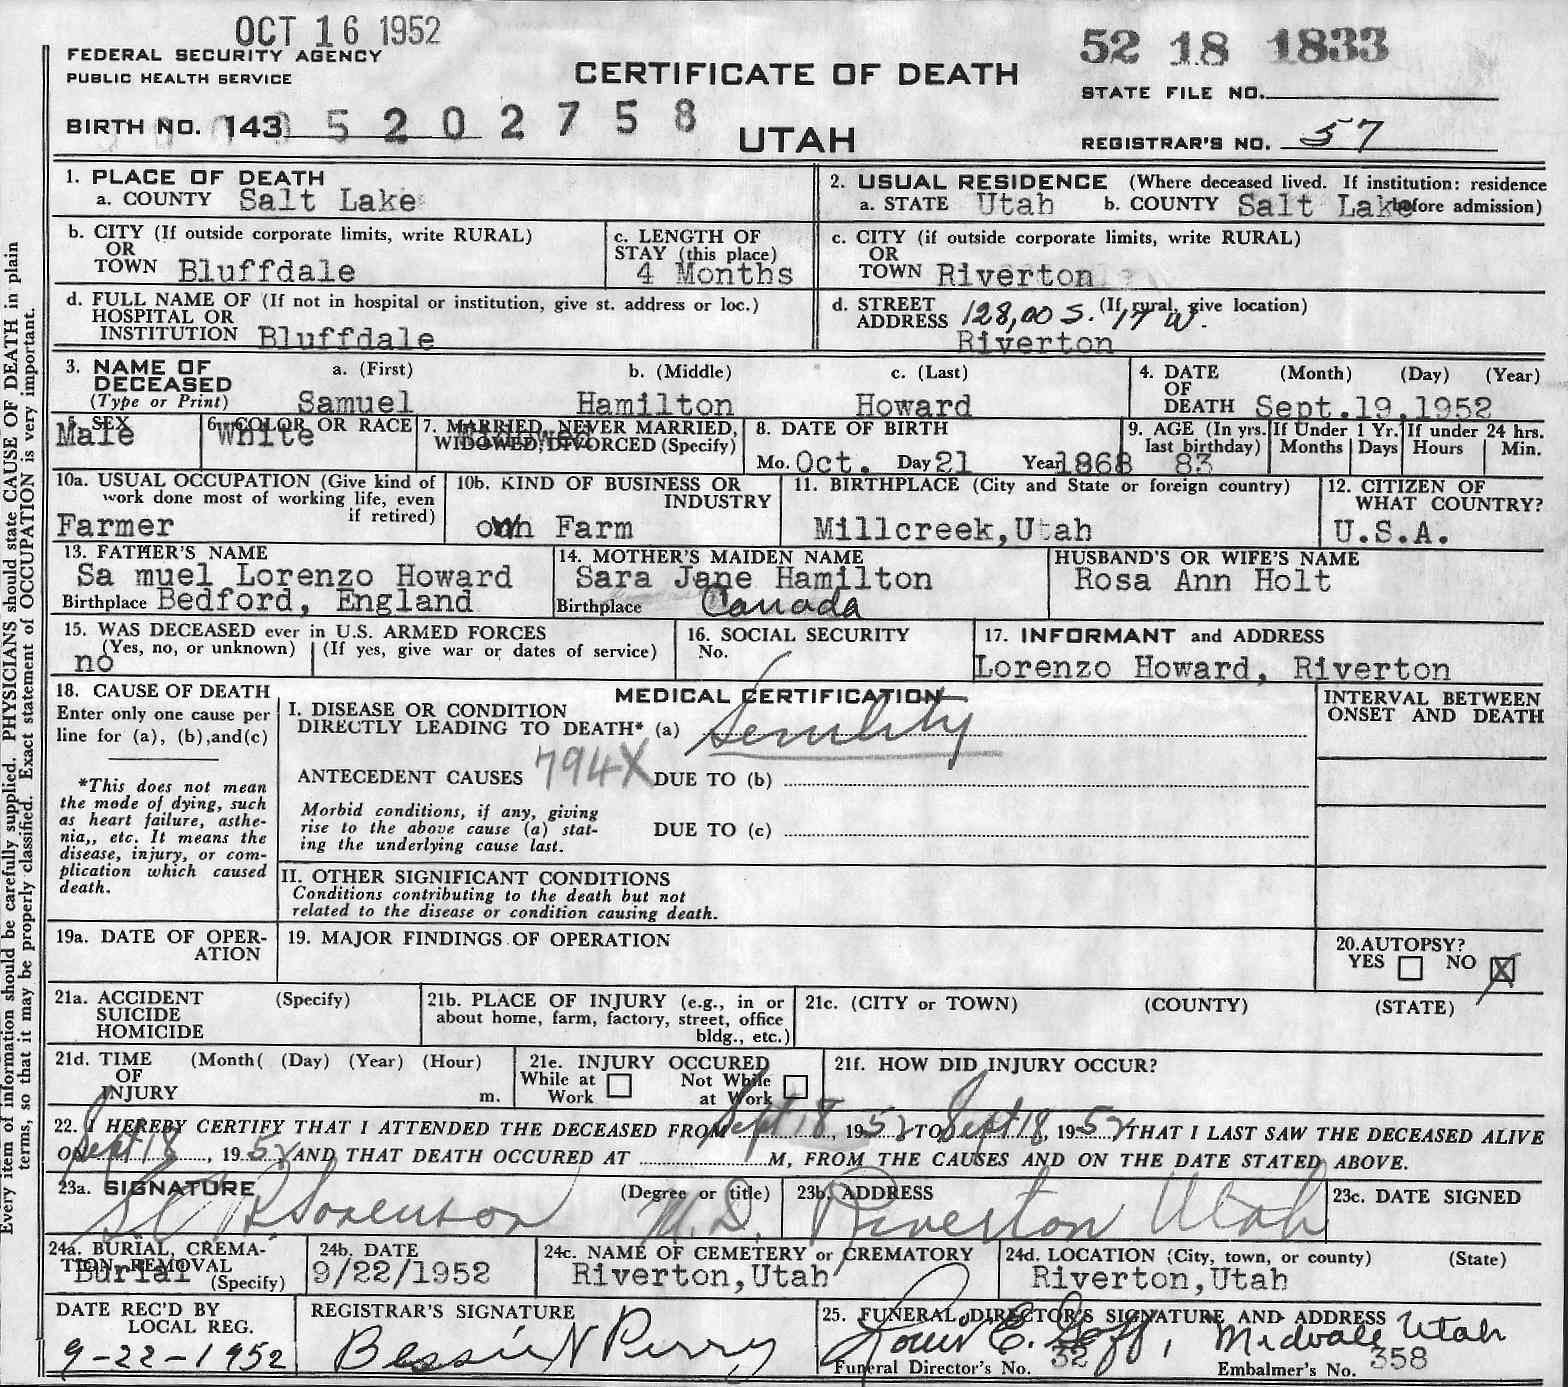 OCT 16 1952
FEDERAL SECURITY AGENCY
PUBLIC HEALTH SERVICE
CERTIFICATE OF DEATH
52 18 1833
STATE FILE NO.
BIRTH NO. 143 5 2 0 2 7 5 8
UTAH
REGISTRAR'S NO. 57
1. PLACE OF DEATH
a. COUNTY Salt Lake
2. USUAL RESIDENCE (Where deceased lived. If institution: residence before admission)
a. STATE Utah b. COUNTY Salt Lake
b. CITY (If outside corporate limits, write RURAL)
OR
TOWN Bluffdale
c. LENGTH OF
STAY (this place)
4 Months
c. CITY (if outside corporate limits, write RURAL)
OR
TOWN Riverton
d. FULL NAME OF (If not in hospital or institution, give st. address or loc.)
HOSPITAL OR
INSTITUTION Bluffdale
d. STREET (If rural, give location)
ADDRESS 128,00 S. 17 W.
Riverton
3. NAME OF
DECEASED
(Type or Print)
a. (First) b. (Middle) c. (Last)
Samuel Hamilton Howard
4. DATE (Month) (Day) (Year)
OF
DEATH Sept.19,1952
5. SEX
Male
6. COLOR OR RACE
White
7. MARRIED, NEVER MARRIED,
WIDOWED, DIVORCED (Specify)
Widowed
8. DATE OF BIRTH
Mo. Oct. Day 21 Year 1868
9. AGE (In yrs.
last birthday)
83
If Under 1 Yr.
Months Days
If under 24 hrs.
Hours Min.
10a. USUAL OCCUPATION (Give kind of
work done most of working life, even
if retired)
Farmer
10b. KIND OF BUSINESS OR
INDUSTRY
own Farm
11. BIRTHPLACE (City and State or foreign country)
Millcreek,Utah
12. CITIZEN OF
WHAT COUNTRY?
U.S.A.
13. FATHER'S NAME
Sa muel Lorenzo Howard
Birthplace Bedford, England
14. MOTHER'S MAIDEN NAME
Sara Jane Hamilton
Birthplace Canada
HUSBAND'S OR WIFE'S NAME
Rosa Ann Holt
15. WAS DECEASED ever in U.S. ARMED FORCES
(Yes, no, or unknown) (If yes, give war or dates of service)
no
16. SOCIAL SECURITY
No.
17. INFORMANT and ADDRESS
Lorenzo Howard, Riverton
18. CAUSE OF DEATH
Enter only one cause per
line for (a), (b),and(c)
*This does not mean
the mode of dying, such
as heart failure, asthe-
nia,, etc. It means the
disease, injury, or com-
plication which caused
death.
MEDICAL CERTIFICATION
I. DISEASE OR CONDITION
DIRECTLY LEADING TO DEATH* (a) Senility
ANTECEDENT CAUSES 794X DUE TO (b)
Morbid conditions, if any, giving
rise to the above cause (a) stat-
ing the underlying cause last.
DUE TO (c)
INTERVAL BETWEEN
ONSET AND DEATH
II. OTHER SIGNIFICANT CONDITIONS
Conditions contributing to the death but not
related to the disease or condition causing death.
19a. DATE OF OPER-
ATION
19. MAJOR FINDINGS OF OPERATION
20.AUTOPSY?
YES NO X
21a. ACCIDENT (Specify)
SUICIDE
HOMICIDE
21b. PLACE OF INJURY (e.g., in or
about home, farm, factory, street, office
bldg., etc.)
21c. (CITY or TOWN) (COUNTY) (STATE)
21d. TIME (Month( (Day) (Year) (Hour)
OF
INJURY m.
21e. INJURY OCCURED
While at Work Not While at Work
21f. HOW DID INJURY OCCUR?
22. I HEREBY CERTIFY THAT I ATTENDED THE DECEASED FROM Sept 18, 1952 TO Sept 18, 1952 THAT I LAST SAW THE DECEASED ALIVE
ON Sept 18, 1952 AND THAT DEATH OCCURED AT M, FROM THE CAUSES AND ON THE DATE STATED ABOVE.
23a. SIGNATURE (Degree or title)
Sorenson M.D.
23b. ADDRESS
Riverton Utah
23c. DATE SIGNED
24a. BURIAL, CREMA-
TION, REMOVAL
(Specify)
Burial
24b. DATE
9/22/1952
24c. NAME OF CEMETERY or CREMATORY
Riverton,Utah
24d. LOCATION (City, town, or county) (State)
Riverton,Utah
DATE REC'D BY
LOCAL REG.
9-22-1952
REGISTRAR'S SIGNATURE
Bessie N Perry
25. FUNERAL DIRECTOR'S SIGNATURE AND ADDRESS
Louis E. Goff, Midvale Utah
Funeral Director's No. 32 Embalmer's No. 358
Every item of information should be carefully supplied. PHYSICIANS should state CAUSE OF DEATH in plain
terms, so that it may be properly classified. Exact statement of OCCUPATION is very important.